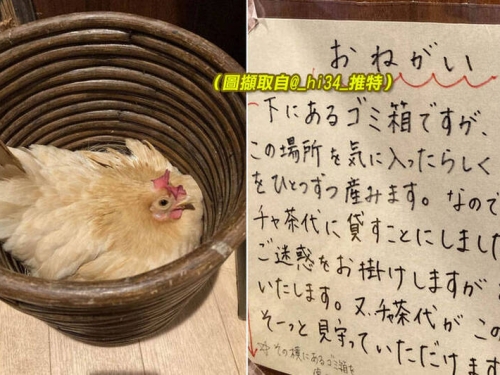 おねがい
（圖擷取自@_hi34_推特）
下にあるゴミ箱ですが、
この場所を気に入ったらしく
をひとつずつ産みます。なので
チャ茶代に貸すことにしました
ご迷惑をお掛けしますが
いたします。又、チャ茶代がこの
そーっと見守っていただけます
その横にあるゴミ箱を